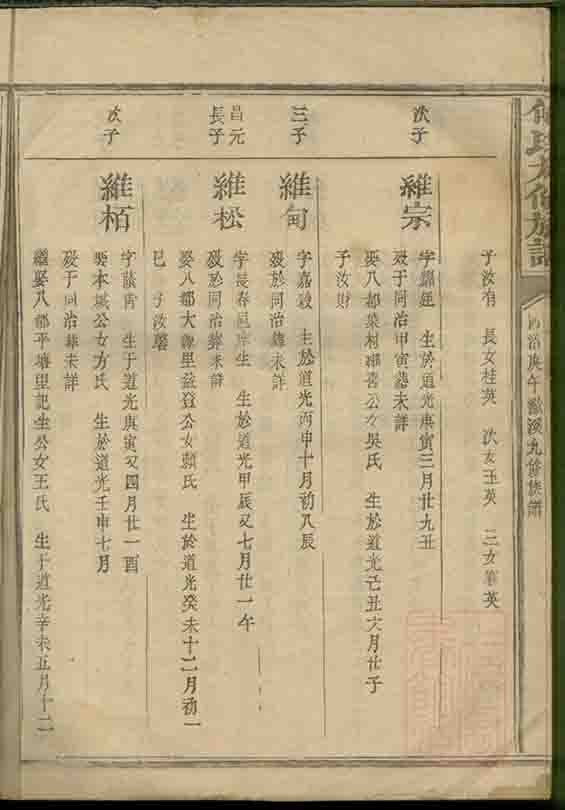 同治庚午 九修族譜
子汝有 長女桂英 次女玉英 三女華英
次子
維宗
生於道光庚寅三月廿九丑
歿于同治甲寅葬未詳
娶八都菜村 公女吳氏 生於道光己丑六月廿子
子汝財
三子
維甸
字嘉 生於道光丙申十月初八辰
歿於同治葬未詳
昌元
長子
維松
字長春邑庠生 生於道光甲辰又七月廿一午
歿於同治葬未詳
娶八都大 里益登公女顏氏 生於道光癸未十二月初一
巳 子汝馨
次子
維栢
字蔭喬 生于道光庚寅又四月廿一酉
娶本城公女方氏 生於道光壬申七月
歿于同治葬未詳
繼娶八都平塘里 生公女王氏 生于道光辛未五月十二